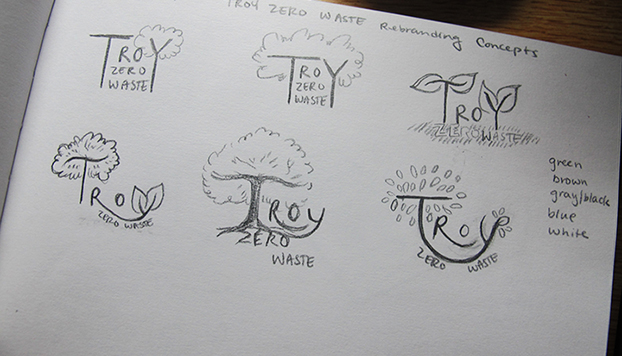 TROY ZERO WASTE Rebranding Concepts
TROY
ZERO
WASTE
TROY
ZERO
WASTE
TROY
ZERO WASTE
TROY
ZERO WASTE
TROY
ZERO
WASTE
TROY
ZERO WASTE
green
brown
gray/black
blue
white